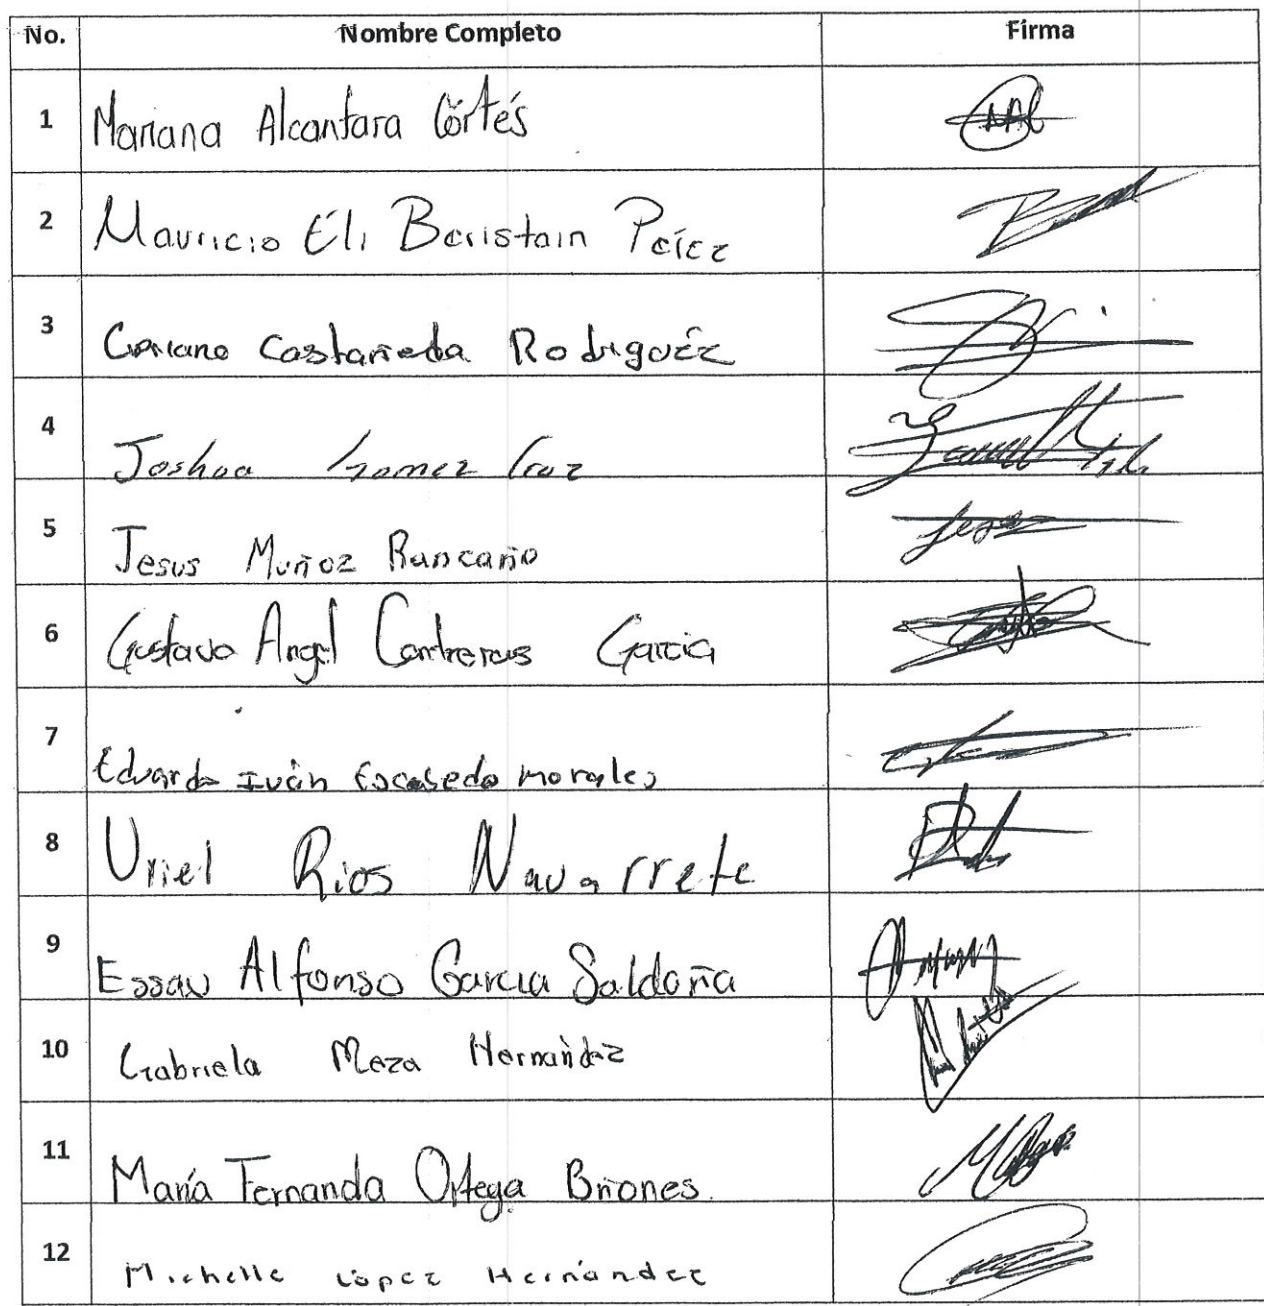 No. Nombre Completo Firma
1 Mariana Alcantara Cortés
2 Mauricio Eli Beristain Peréz
3 Cipriano Castañeda Rodriguéz
4 Joshua Gomez Cruz
5 Jesus Muñoz Rancaño
6 Gustavo Angel Contreras Garcia
7 Eduardo Iván Escobedo Morales
8 Uriel Rios Navarrete
9 Essau Alfonso Garcia Saldaña
10 Gabriela Meza Hernández
11 María Fernanda Ortega Briones
12 Michelle López Hernández